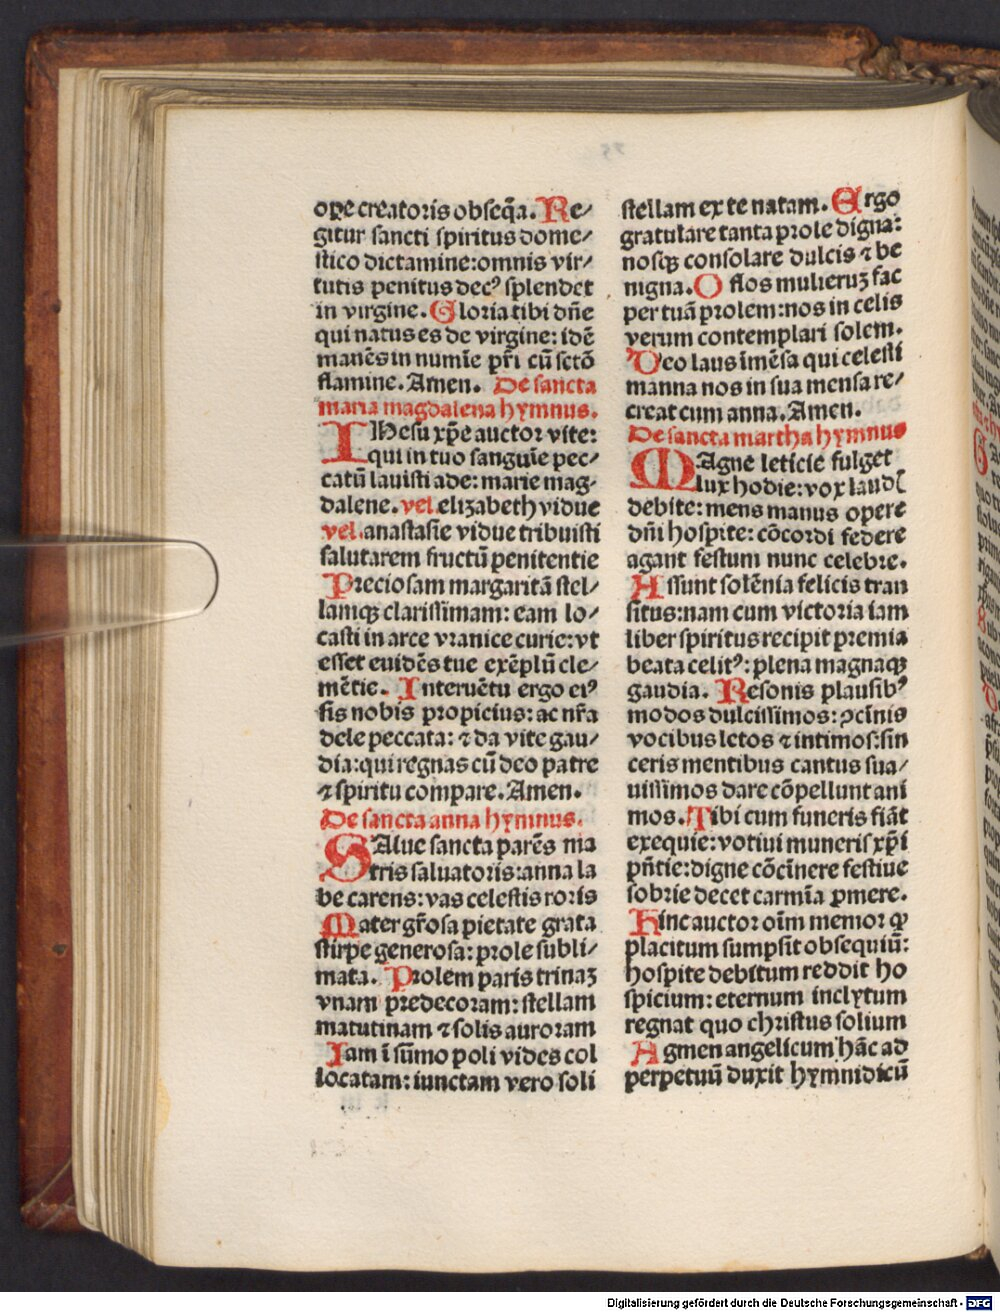 ope creatoris obseq̃a. Re⸗
gitur sancti spiritus dome⸗
stico dictamine:omnis vir⸗
tutis penitus decꝰ splendet
in virgine. Gloria tibi dñe
qui natus es de virgine: idẽ
manẽs in numĩe pr̃i cũ sctõ
flamine. Amen. De sancta
maria magdalena hymnus.
IHesu xp̃e auctor vite:
qui in tuo sanguĩe pec⸗
catũ lauisti ade: marie mag⸗
dalene. vel. elizabeth vidue
vel. anastasie vidue tribuisti
salutarem fructũ penitentie
Preciosam margaritã stel⸗
lamqꝫ clarissimam: eam lo⸗
casti in arce vranice curie: vt
esset euidẽs tue exẽplũ cle⸗
mẽtie. Interuẽtu ergo eiꝰ
sis nobis propicius: ac nr̃a
dele peccata: ⁊ da vite gau⸗
dia: qui regnas cũ deo patre
⁊ spiritu compare. Amen.
De sancta anna hymnus.
SAlue sancta parẽs ma
tris saluatoris: anna la
be carens: vas celestis roris
Mater gr̃osa pietate grata
stirpe generosa: prole subli⸗
mata. Prolem paris trinaꝫ
vnam predecoram: stellam
matutinam ⁊ solis auroram
Iam ĩ sũmo poli vides col
locatam: iunctam vero soli
stellam ex te natam. Ergo
gratulare tanta prole digna:
nosqꝫ consolare dulcis ⁊ be
nigna. O flos mulieruꝫ fac
per tuã prolem: nos in celis
verum contemplari solem.
Deo laus ĩmẽsa qui celesti
manna nos in sua mensa re⸗
creat cum anna. Amen.
De sancta martha hymnus
MAgne leticie fulget
lux hodie: vox laudꝭ
debite: mens manus opere
dñi hospite: cõcordi federe
agant festum nunc celebre.
Assunt solẽnia felicis tran
situs: nam cum victoria iam
liber spiritus recipit premia
beata celitꝰ: plena magnaqꝫ
gaudia. Resonis plausibꝰ
modos dulcissimos: ꝯcĩnis
vocibus letos ⁊ intimos: sin
ceris mentibus cantus sua⸗
uissimos dare cõpellunt ani
mos. Tibi cum funeris fiãt
exequie: votiui muneris xp̃i
pñtie: digne cõcĩnere festiue
sobrie decet carmĩa ꝓmere.
Hinc auctor oĩm memor ꝙ
placitum sumpsit obsequiũ:
hospite debitum reddit ho
spicium: eternum inclytum
regnat quo christus solium
Agmen angelicum hãc ad
perpetuũ duxit hymnidicũ
Digitalisierung gefördert durch die Deutsche Forschungsgemeinschaft - DFG